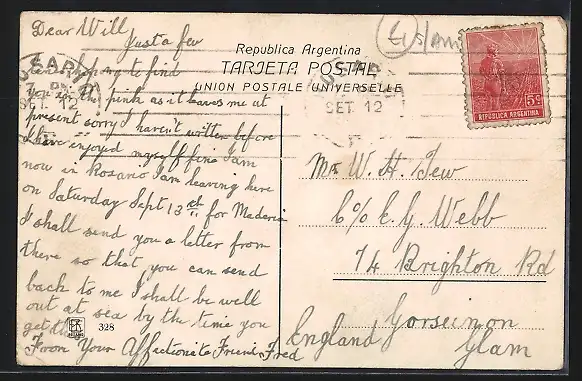 Dear Will
Just a few
lines hoping to find
you in the pink as it leaves me at
present sorry I haven't written before
I have enjoyed myself fine I am
now in Rosario I am leaving here
on Saturday Sept 13th for Maderia
I shall send you a letter from
there so that you can send
back to me I shall be well
out at sea by the time you
get
From Your Affectionate Friend Fred
328
Republica Argentina
TARJETA POSTAL
UNION POSTALE UNIVERSELLE
SET. 12
SET 12
5c
REPUBLICA ARGENTINA
Mr W. H. Tew
C/o E. G. Webb
74 Brighton Rd
Gorseinon
England Glam